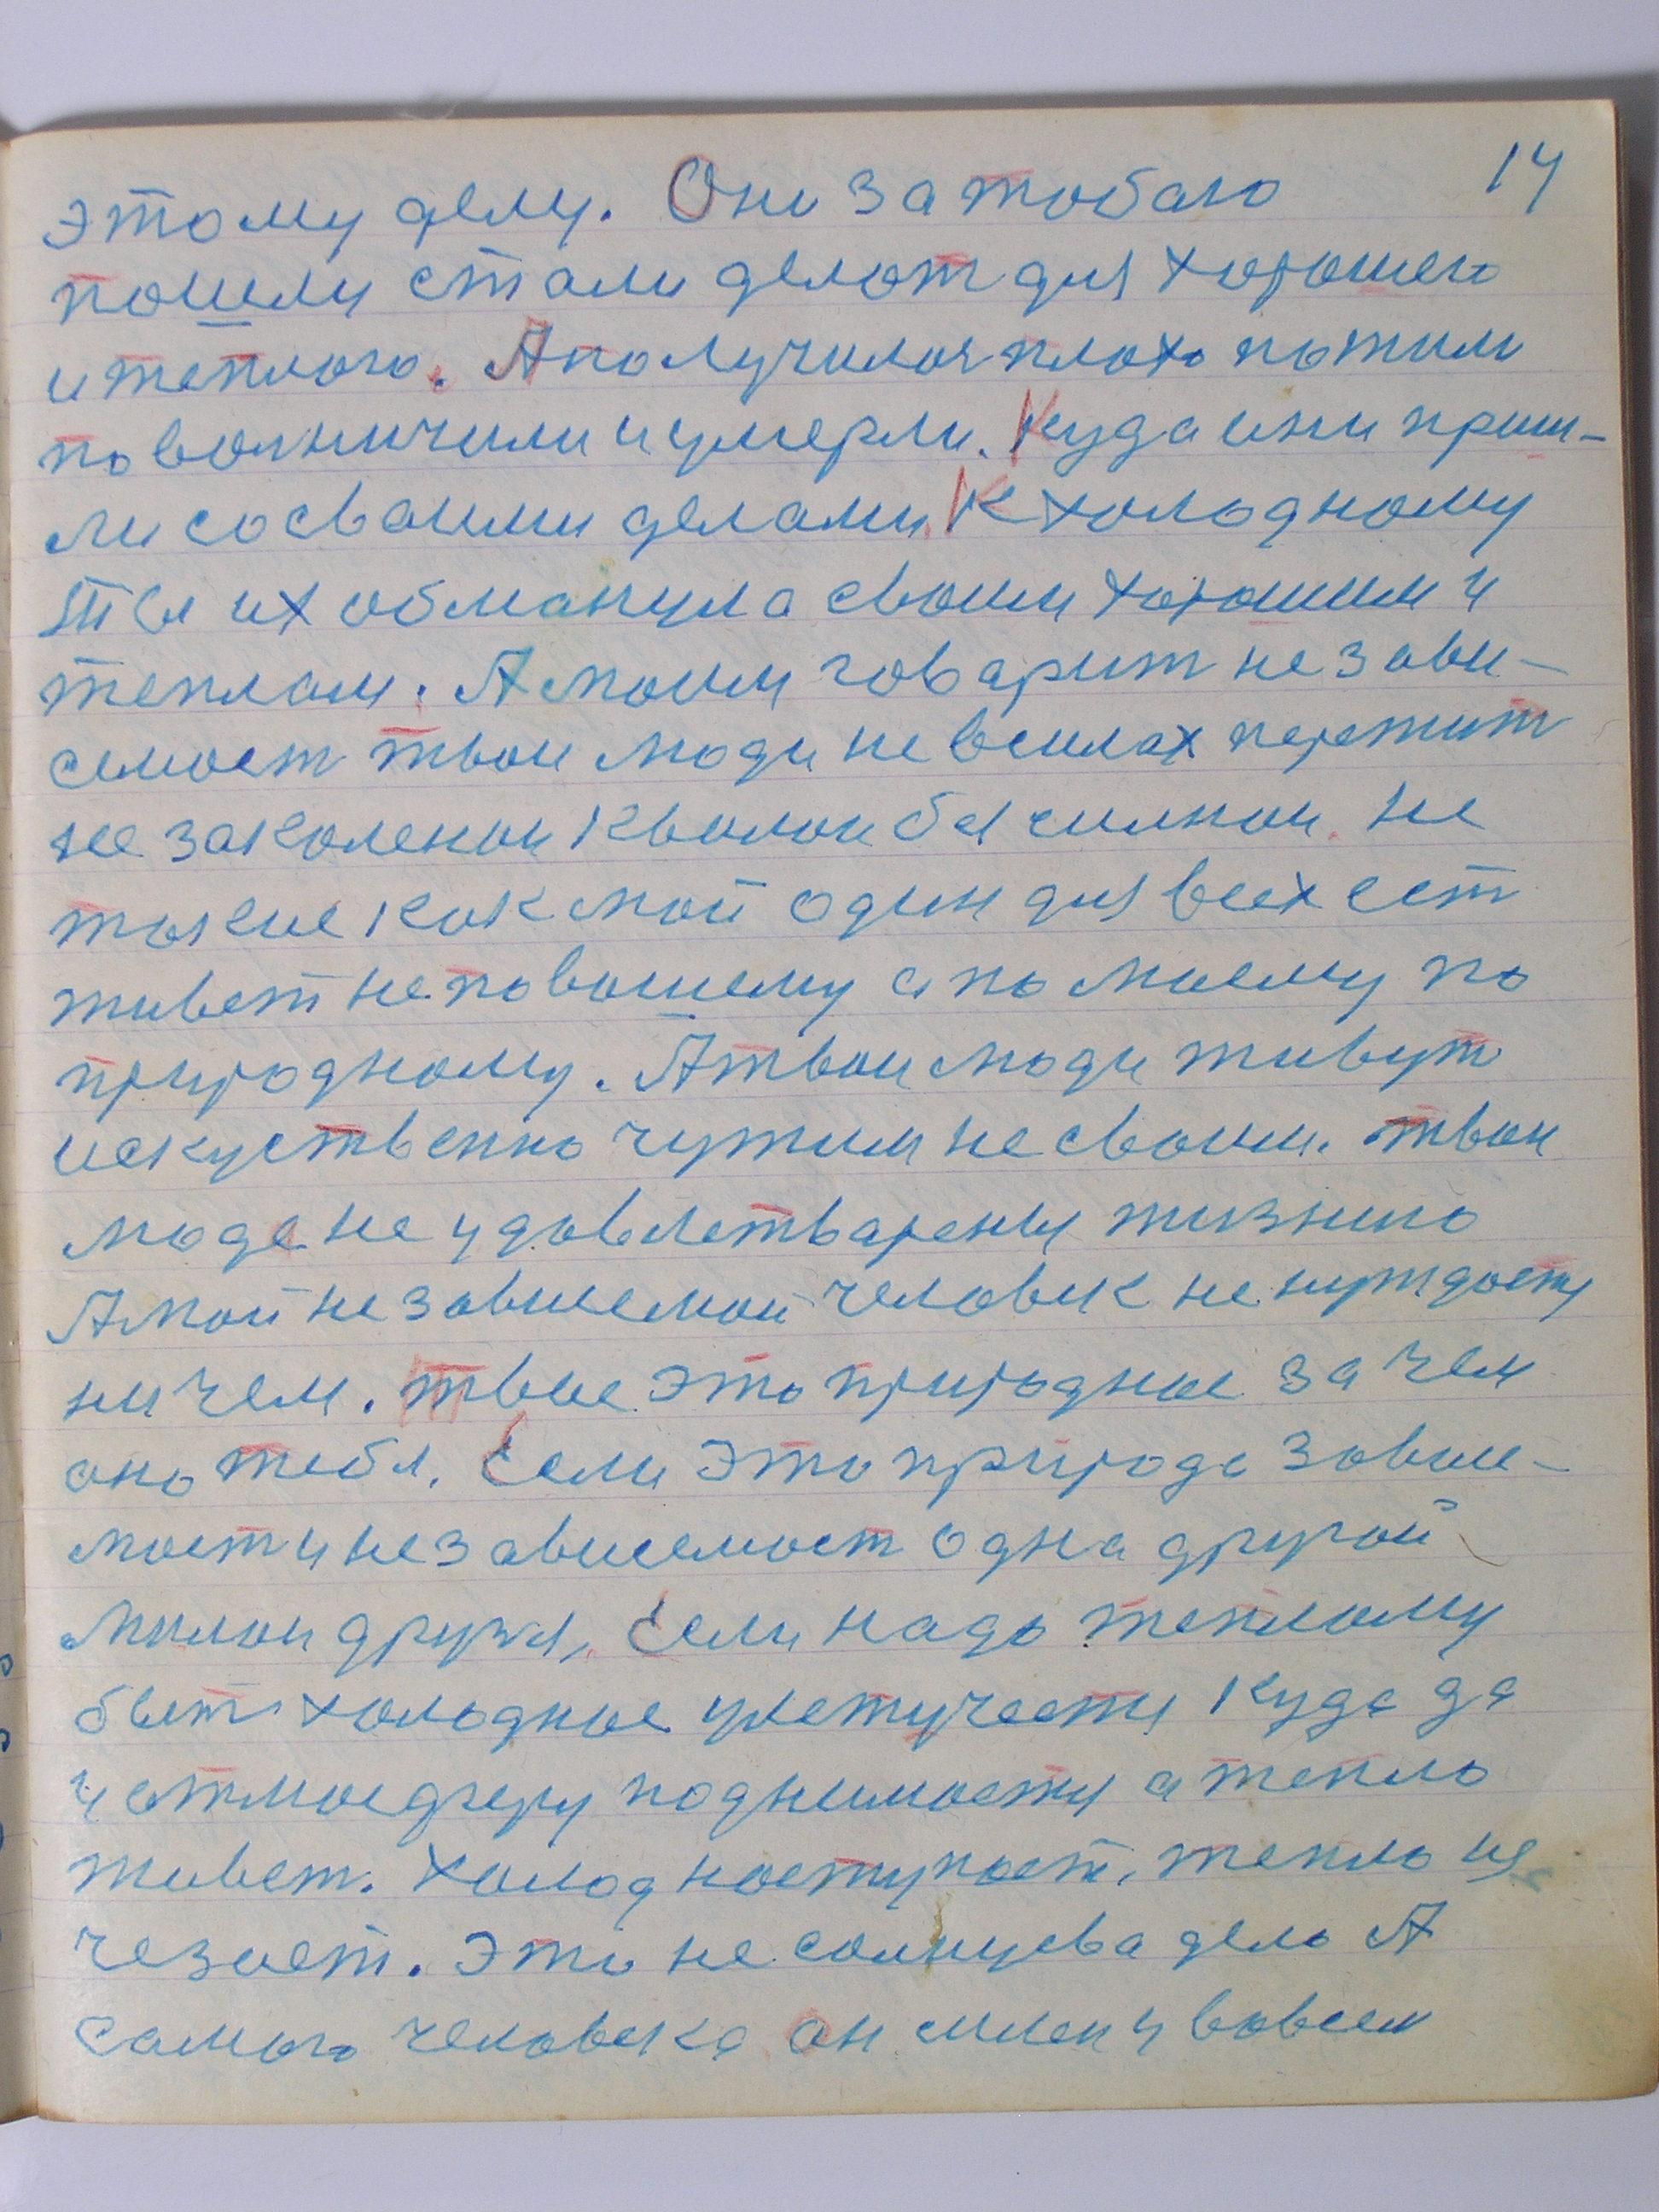 14
этому делу. Они за тобаю
пошли стали делот для хорошего
и теплого. А получилос плохо пожили
поволничили и умерли. Куда ини приш-
ли со сваими делами. К холодному
Ты их обманула своим хорошим и
теплам. А моим говарит незави-
семост твои люди не всилах пережит
не законенои кволои бясилнои. не
токие как мой один для всех ест
живет не повашему а по моему по
природному. А твои люди живут
искуственно чужим не своим. твои
люде не удовлетварены жизнию
А мой незовисемой человек не нуждаеты
ни чем. твое это природное за чем
оно тебя. Если это природа завис-
мост и независемост одна другой
милои друзя, Если надо теплому
быт холодное улетучеты куда да
и атмосферу поднимаеты а тепло
живет. Холод наступает, тепло ис
чезает. Это не солнцева дело А
самого человека он силен и вовсем